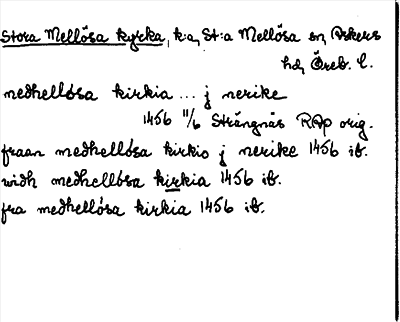 Stora Mellösa kyrka, k:a, St:a Mellösa sn, Askers
hd, Öreb. l.
medhellósa kirkia ... j nerike
1456 11/6 Strängnäs RAp orig.
fraan medhellósa kirkio j nerike 1456 ib.
widh medhellósa kirkia 1456 ib.
fra medhellósa kirkia 1456 ib.